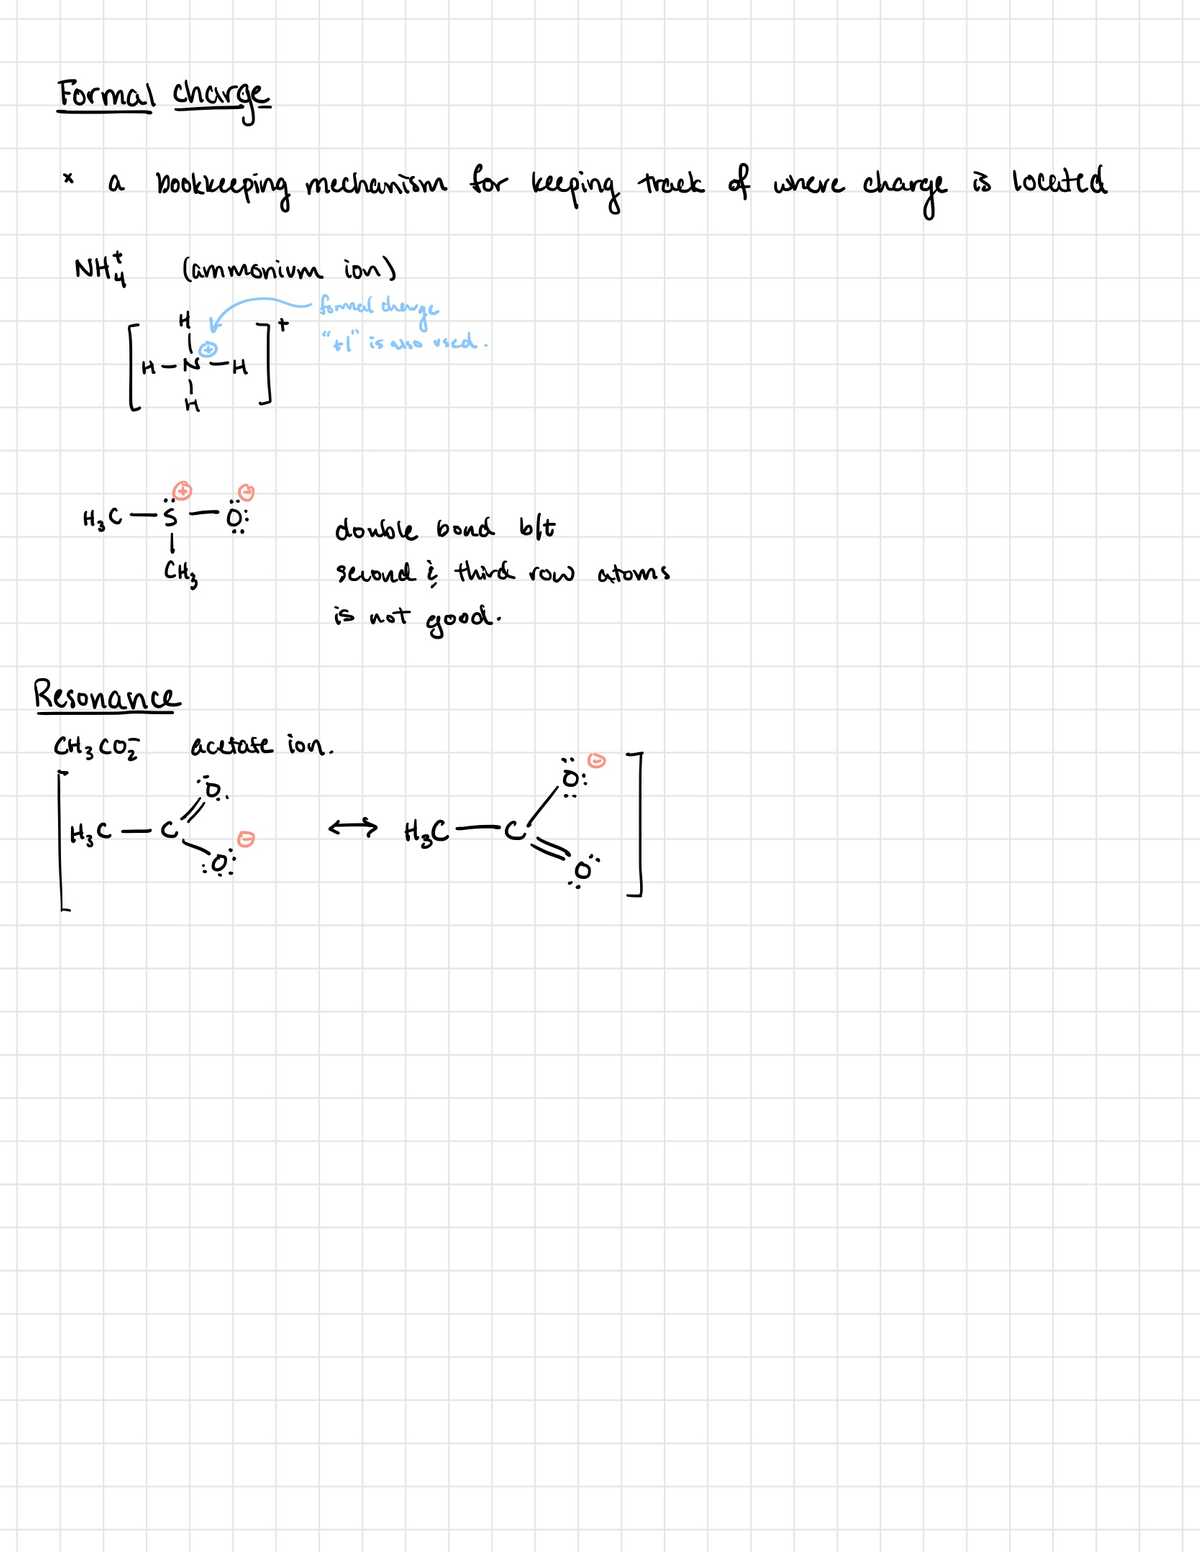 Formal charge
* a bookkeeping mechanism for keeping track of where charge is located
NH₄⁺ (ammonium ion)
formal charge
"+1" is also used.
H
H–N⊕–H
H
[ ]⁺
H₃C–S̈⊕–Ö:⊖
CH₃
double bond b/t
second & third row atoms
is not good.
Resonance
CH₃CO₂⁻ acetate ion.
O
H₃C–C
O ⊖
↔
O ⊖
H₃C–C
O